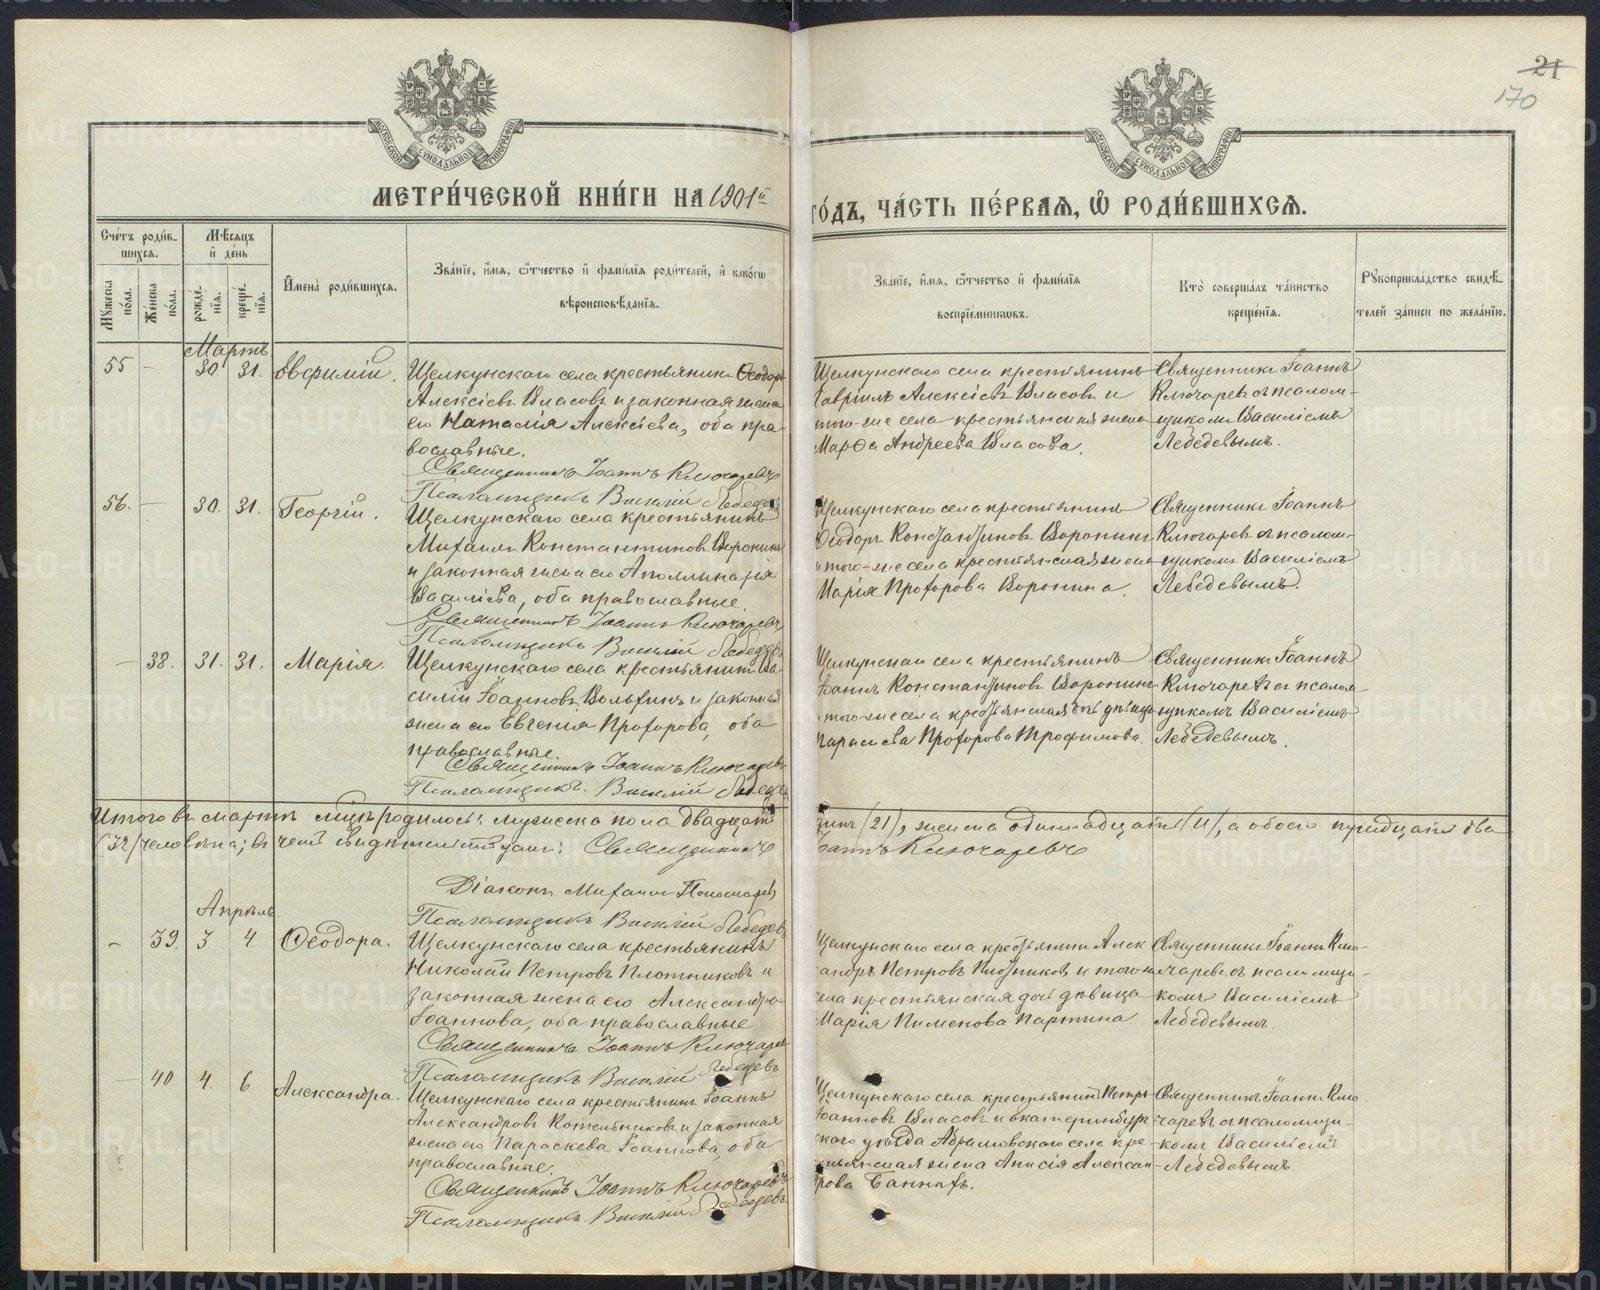 21
170
МОСКОВСКОЙ СУНОДАЛЬНОЙ ТИПОГРАФИИ
МОСКОВСКОЙ СУНОДАЛЬНОЙ ТИПОГРАФИИ
МЕТРИ́ЧЕСКОЙ КНИ́ГИ НА 1901й
ГО́ДЪ, ЧА́СТЬ ПЕ́РВАЯ, Ѡ РОДИ́ВШИХСЯ.
Сче́тъ роди́в-
шихся.
Мѣ́сяцъ
и҆ де́нь
Мꙋ́жеска по́ла.
Же́нска по́ла.
рожде́-нїѧ.
креще́-нїѧ.
И҆мена̀ роди́вшихся.
Зва́нїе, и҆́мя, ѻ҆́тчество и҆ фами́лїя роди́телей, и҆ како́гѡ
вѣроисповѣ́данїя.
Зва́нїе, и҆́мя, ѻ҆́тчество и҆ фами́лїя
воспрїе́мникѡвъ.
Кто̀ соверша́лъ та́инство
креще́нїя.
Рꙋкоприкла́дство свидѣ́-
телей за́писи по жела́нїю.
Мартъ
55 - 30 31. Евфимій.
Щелкунскаго села крестьянинъ Ѳеодоръ
Алексіевъ Власовъ и законная жена
его Наталія Алексіева, оба пра-
вославные.
Священникъ Іоаннъ Ключаревъ
Псаломщикъ Василій Лебедевъ
Щелкунскаго села крестьянинъ
Гавріилъ Алексіевъ Власовъ и
того-же села крестьянская жена
Марѳа Андреева Власова.
Священникъ Іоаннъ
Ключаревъ съ псалом-
щикомъ Василіемъ
Лебедевымъ.
56. - 30. 31. Георгій.
Щелкунскаго села крестьянинъ
Михаилъ Константиновъ Воронинъ
и законная жена его Аполлинарія
Василіева, оба православные.
Священникъ Іоаннъ Ключаревъ
Псаломщикъ Василій Лебедевъ
Щелкунскаго села крестьянинъ
Ѳеодоръ Константиновъ Воронинъ
и того-же села крестьянская жена
Марія Прохорова Воронина.
Священникъ Іоаннъ
Ключаревъ съ псалом-
щикомъ Василіемъ
Лебедевымъ.
- 38. 31. 31. Марія.
Щелкунскаго села крестьянинъ Ва-
силій Іоанновъ Вольхинъ и законная
жена его Евгенія Прохорова, оба
православные
Священникъ Іоаннъ Ключаревъ
Псаломщикъ Василій Лебедевъ
Щелкунскаго села крестьянинъ
Іоаннъ Константиновъ Воронинъ
и того-же села крестьянская дочь дѣвица
Параскева Прохорова Трофимова.
Священникъ Іоаннъ
Ключаревъ съ псалом-
щикомъ Василіемъ
Лебедевымъ.
Итого въ мартѣ мцѣ родилось: мужеска пола двадцать
динъ (21), женска одиннадцать (11), а обоего тридцать два
(32) человѣка; въ чемъ свидѣтельствуемъ: Священникъ
Іоаннъ Ключаревъ
Діаконъ Михаилъ Пономаревъ
Псаломщикъ Василій Лебедевъ
Апрѣль
- 39. 3 4 Ѳеодора.
Щелкунскаго села крестьянинъ
Николай Петровъ Плотниковъ и
законная жена его Александра
Іоаннова, оба православные
Священникъ Іоаннъ Ключаревъ
Псаломщикъ Василій Лебедевъ
Щелкунскаго села крестьянинъ Алек
сандръ Петровъ Плотниковъ и того же
села крестьянская дочь дѣвица
Марія Пименова Партина.
Священникъ Іоаннъ Клю-
чаревъ съ псаломщи-
комъ Василіемъ
Лебедевымъ
- 40 4. 6 Александра.
Щелкунскаго села крестьянинъ Іоаннъ
Александровъ Котельниковъ и законная
жена его Параскева Іоаннова, оба
православные.
Священникъ Іоаннъ Ключаревъ
Псаломщикъ Василій Лебедевъ
Щелкунскаго села крестьянинъ Петръ
Іоанновъ Власовъ и Екатеринбург
скаго уѣзда Абрамовскаго села кре-
стьянская жена Анисія Алексан-
дрова Банныхъ.
Священникъ Іоаннъ Клю
чаревъ съ псаломщи-
комъ Василіемъ
Лебедевымъ
METRIKI.GASO-URAL.RU